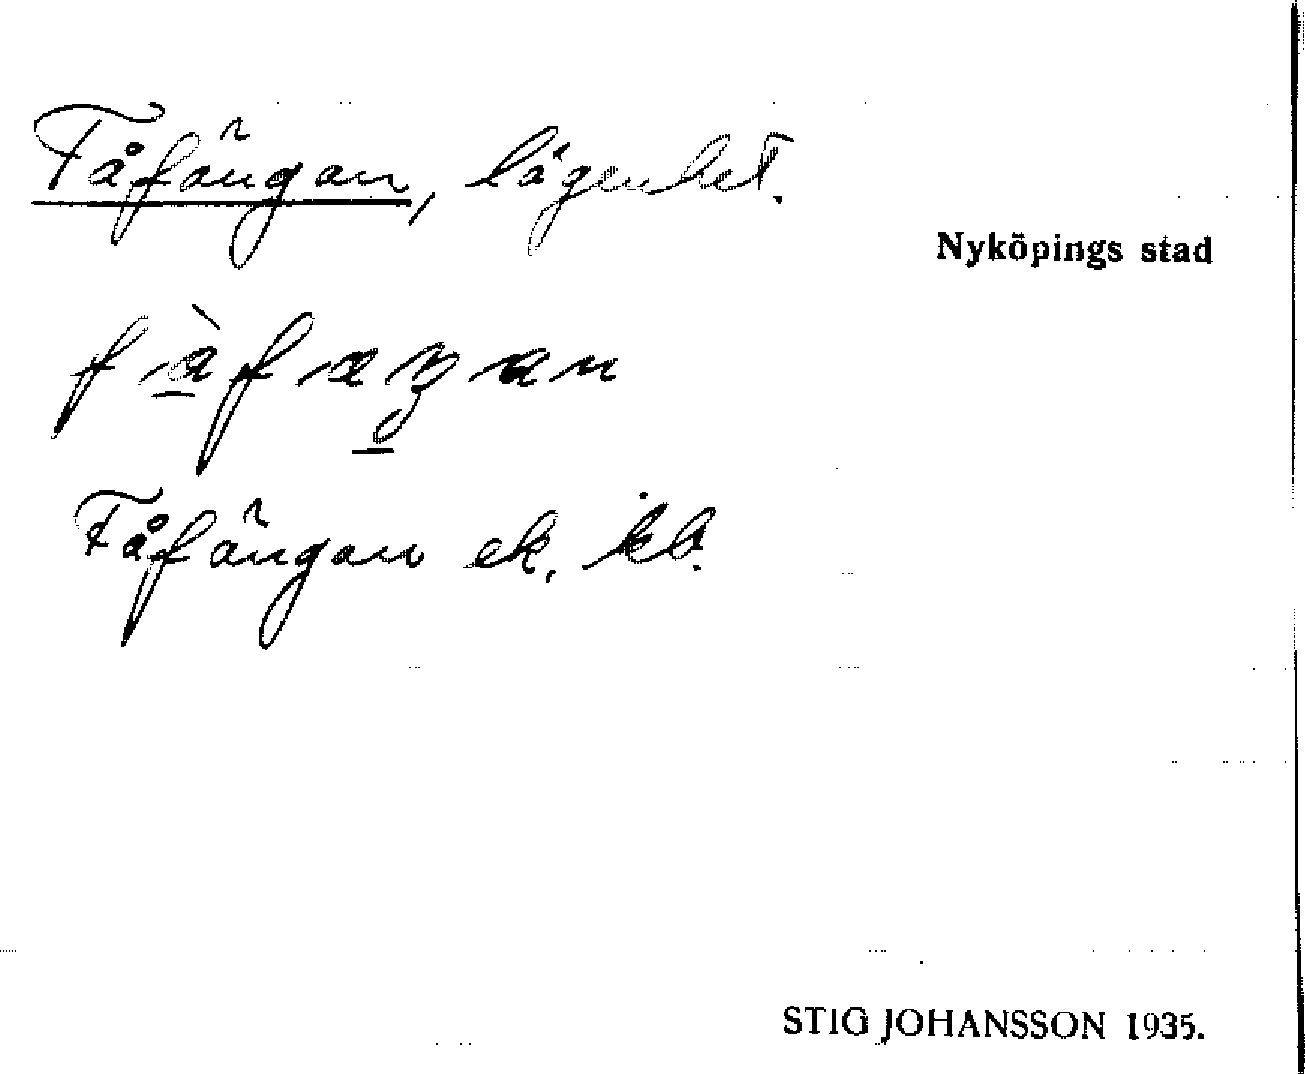 Fåfängan, lägenhet.
Nyköpings stad
Fåfängan ek. kb.
STIG JOHANSSON 1935.